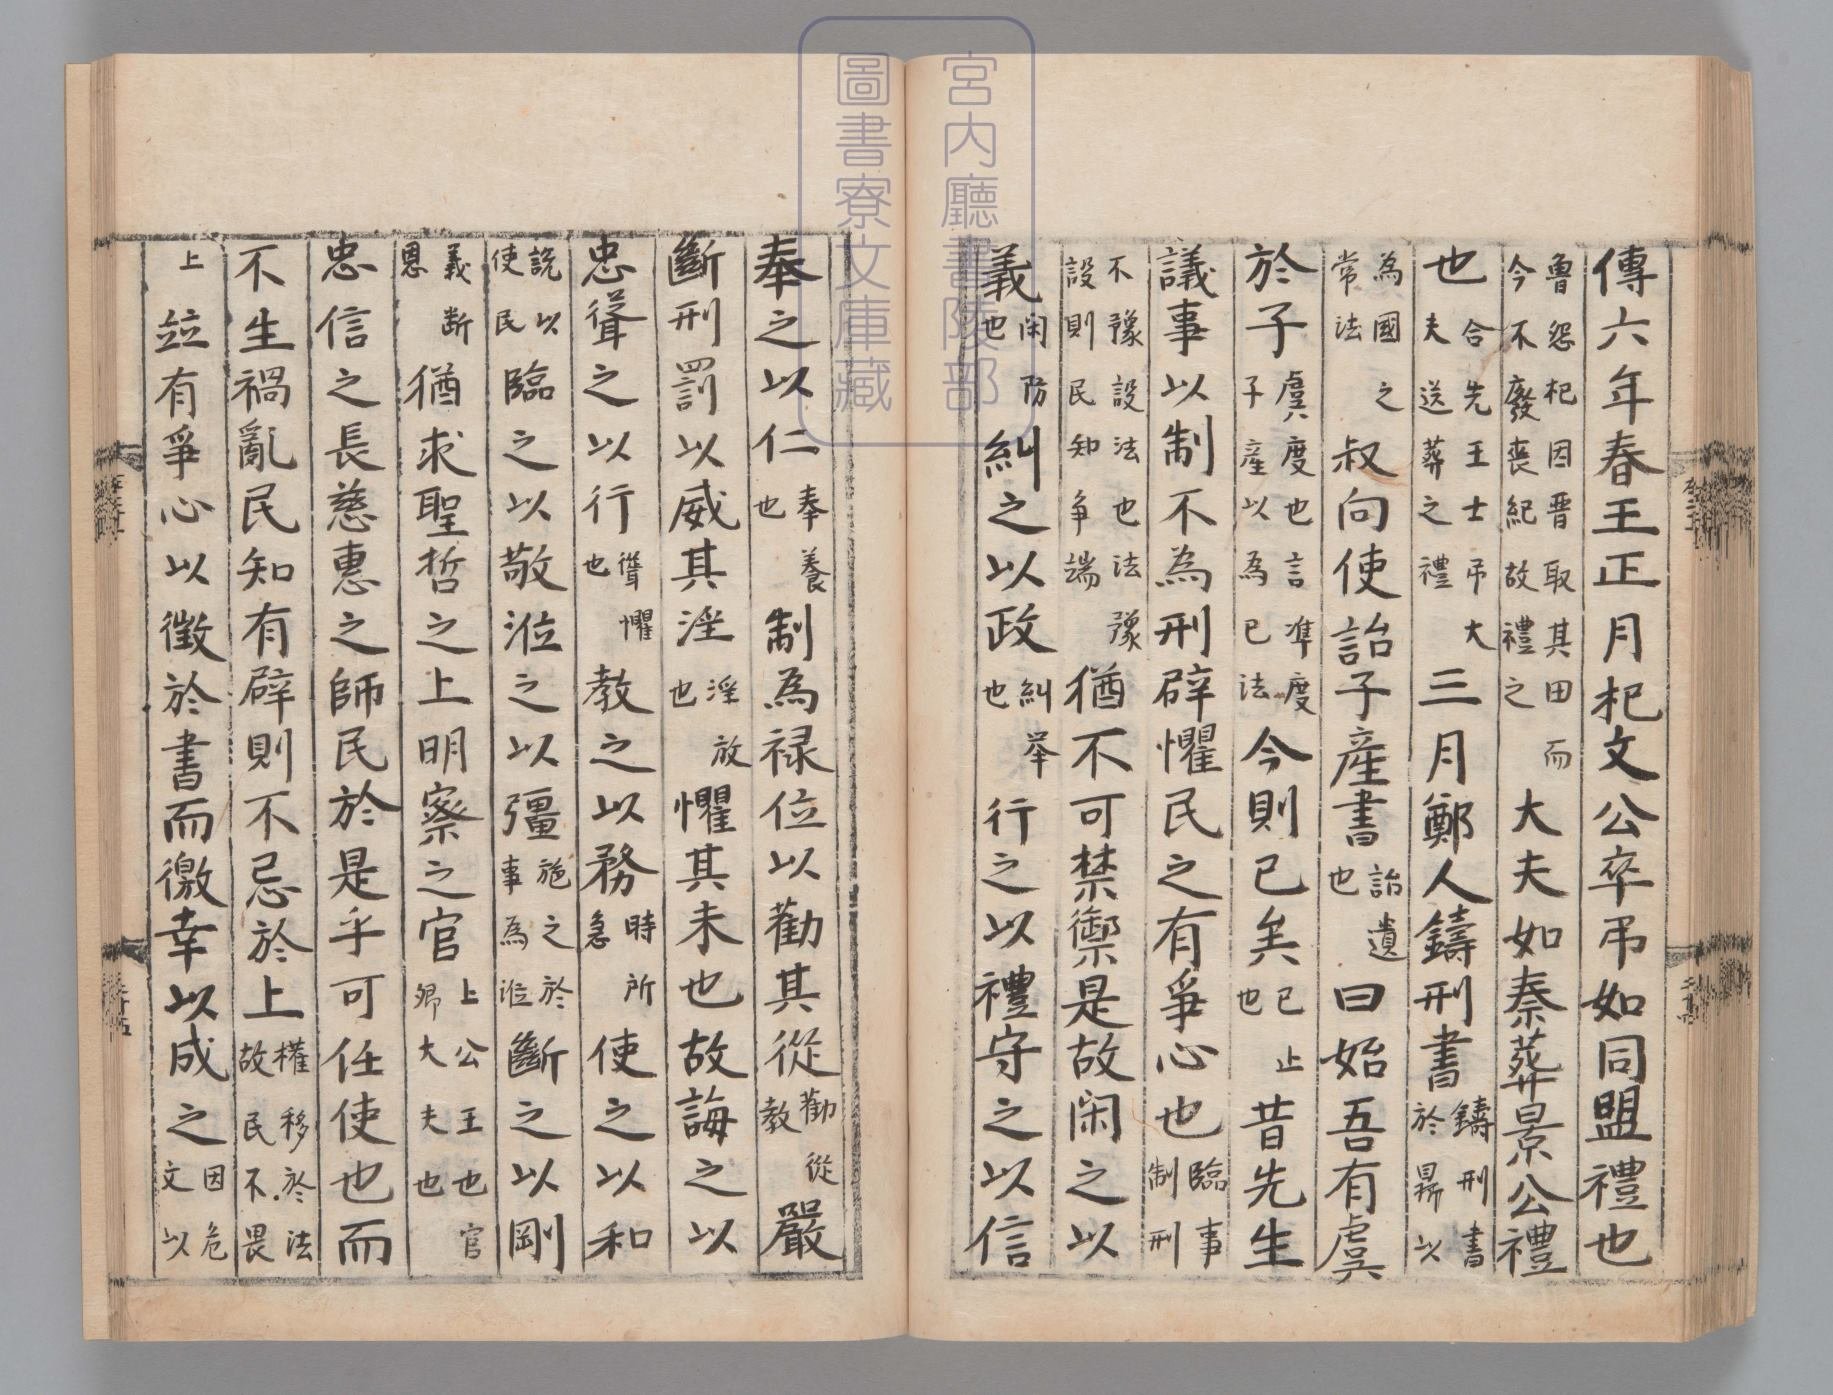 傳六年春王正月杞文公卒吊如同盟禮也
魯怨杞因晋取其田而今不廢喪紀故禮之大夫如秦葬景公禮
也合先王士吊大夫送葬之禮三月鄭人鑄刑書鑄刑書於鼎以
為國之常法叔向使詒子產書詒遺也曰始吾有虞
於子虞度也言准度子產以為已法今則已矣已止也昔先生
議事以制不為刑辟懼民之有爭心也臨事制刑
不豫設法也法豫設則民知争端猶不可禁禦是故閑之以
義閑防也糾之以政糾舉也行之以禮守之以信
奉之以仁奉養也制為禄位以勸其從勸從教嚴
斷刑罰以威其淫淫放也懼其未也故誨之以
忠聳之以行聳懼也教之以務時所急使之以和
說以使民臨之以敬涖之以彊施之於事為涖斷之以剛
義断恩猶求聖哲之上明察之官上公王也官卿大夫也
忠信之長慈惠之師民於是乎可任使也而
不生禍亂民知有辟則不忌於上權移於法故民不畏
上並有爭心以徵於書而徼幸以成之因危文以
宮内廳書陵部
圖書寮文庫藏